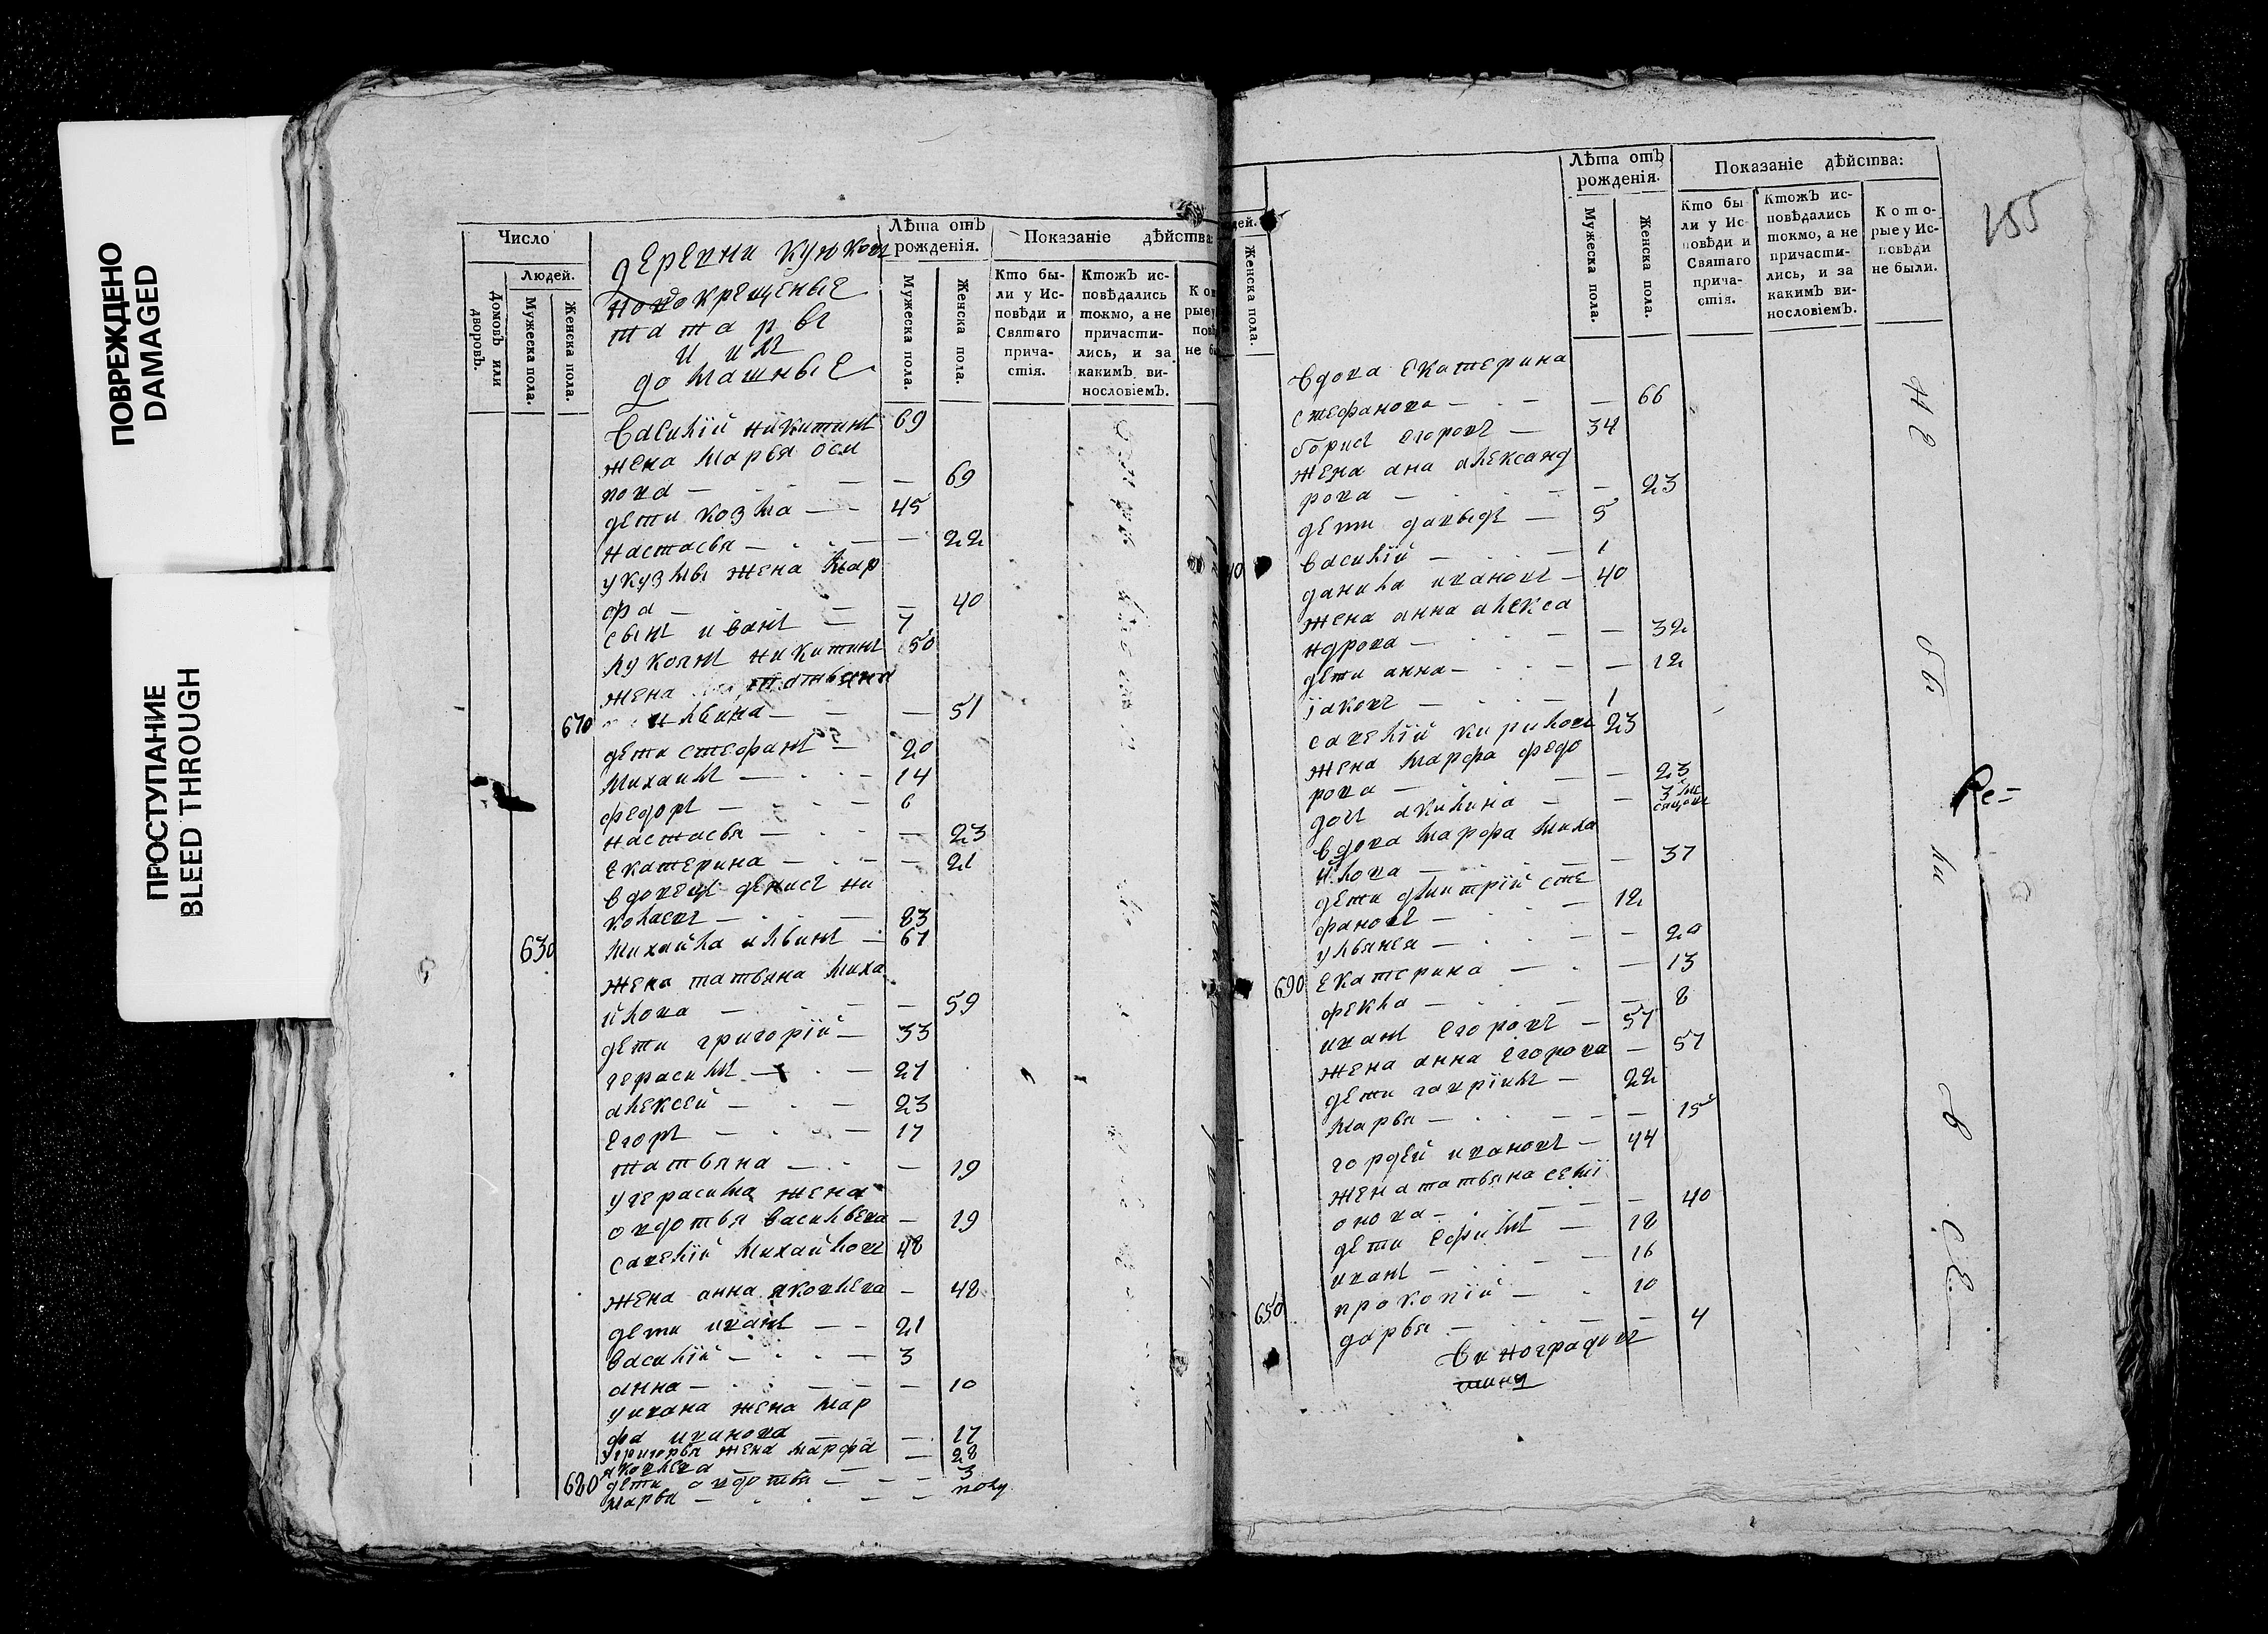 ПОВРЕЖДЕНО
DAMAGED
ПРОСТУПАНИЕ
BLEED THROUGH
Число
Людей.
Домовъ или дворовъ.
Мужеска пола.
Женска пола.
деревни
новокрещеные
татаръ
и ихъ
домашные
Лѣта отъ рожденія.
Мужеска пола.
Женска пола.
Показаніе дѣйства:
Кто бы-
ли у Ис-
повѣди и
Святаго
прича-
стія.
Ктожъ ис-
повѣдались
токмо, а не
причасти-
лись, и за
какимъ ви-
нословіемъ.
василїй никитинъ 69
жена марья оси
пова — — 69
дети козма — 45
настасья — — 22
у кузмы жена мар
фа — — 40
сынъ иванъ — 7
лукоянъ никитинъ 50
жена татьяна
670 ильина — — 51
дети стефанъ — 20
михаилъ — 14
федоръ — 6
настасья — — 23
екатерина — — 21
вдовецъ денисъ ни
колаевъ — 83
630 михайла ильинъ — 67
жена татьяна миха
йлова — — 59
дети григорїй — 33
герасимъ — 27
алексей — 23
егоръ — 17
татьяна — — 19
у герасима жена
овдотья васильева — 19
савелїй михайловъ 48
жена анна яковлева — 48
дети иванъ — 21
василїй — 3
анна — — 10
у ивана жена мар
фа иванова — — 17
у григорья жена марфа
яковлева — — 28
680 дети овдотья — — 3
марья — — полу
дей.
Женска пола.
Лѣта отъ рожденія.
Мужеска пола.
Женска пола.
Показаніе дѣйства:
Кто бы
ли у Ис-
повѣди и
Святаго
прича-
стія.
Ктожъ ис-
повѣдались
токмо, а не
причасти-
лись, и за
какимъ ви-
нословіемъ.
Кото-
рые у Ис-
повѣди
не были.
155
вдова екатерина
стефанова — — 66
борисъ егоровъ — 34
жена ана александ
рова — — 23
дети давыдъ — 5
василїй — 1
40 данила ивановъ — 40
жена анна алекса
ндрова — — 32
дети анна — — 12
їаковъ — 1
савелїй кириловъ 23
жена марфа федо
рова — — 23
дочь акилина — — 3 мѣ
сяцовъ
вдова марфа миха
йлова — — 37
дети дмитрїй сте
фановъ — 12
ульянея — — 20
690 екатерина — — 13
фекла — — 8
иванъ егоровъ — 57
жена анна егорова — 57
дети гаврїилъ — 22
марья — — 15
гордей ивановъ — 44
жена татьяна семї
онова — — 40
дети ефимъ — 18
иванъ — 16
650 прокопїй — 10
дарья — — 4
виноградовъ
не
бы
ли
в
се